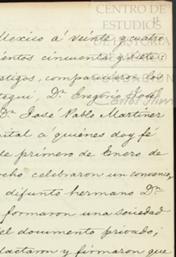 CENTRO DE
ESTUDIOS
DE HISTORIA
Mexico á veinte y cuatro
cientos cincuenta y siete
stigos, comparecieron los
tegui, Dn Gregorio José
Carlos Slim
Dn José Pablo Martinez
pital á quiénes doy fé
de primero de Enero de
ocho celebraron un convenio,
difunto hermano Dn
formaron una sociedad
el documento privado;
dactaron y firmaron que